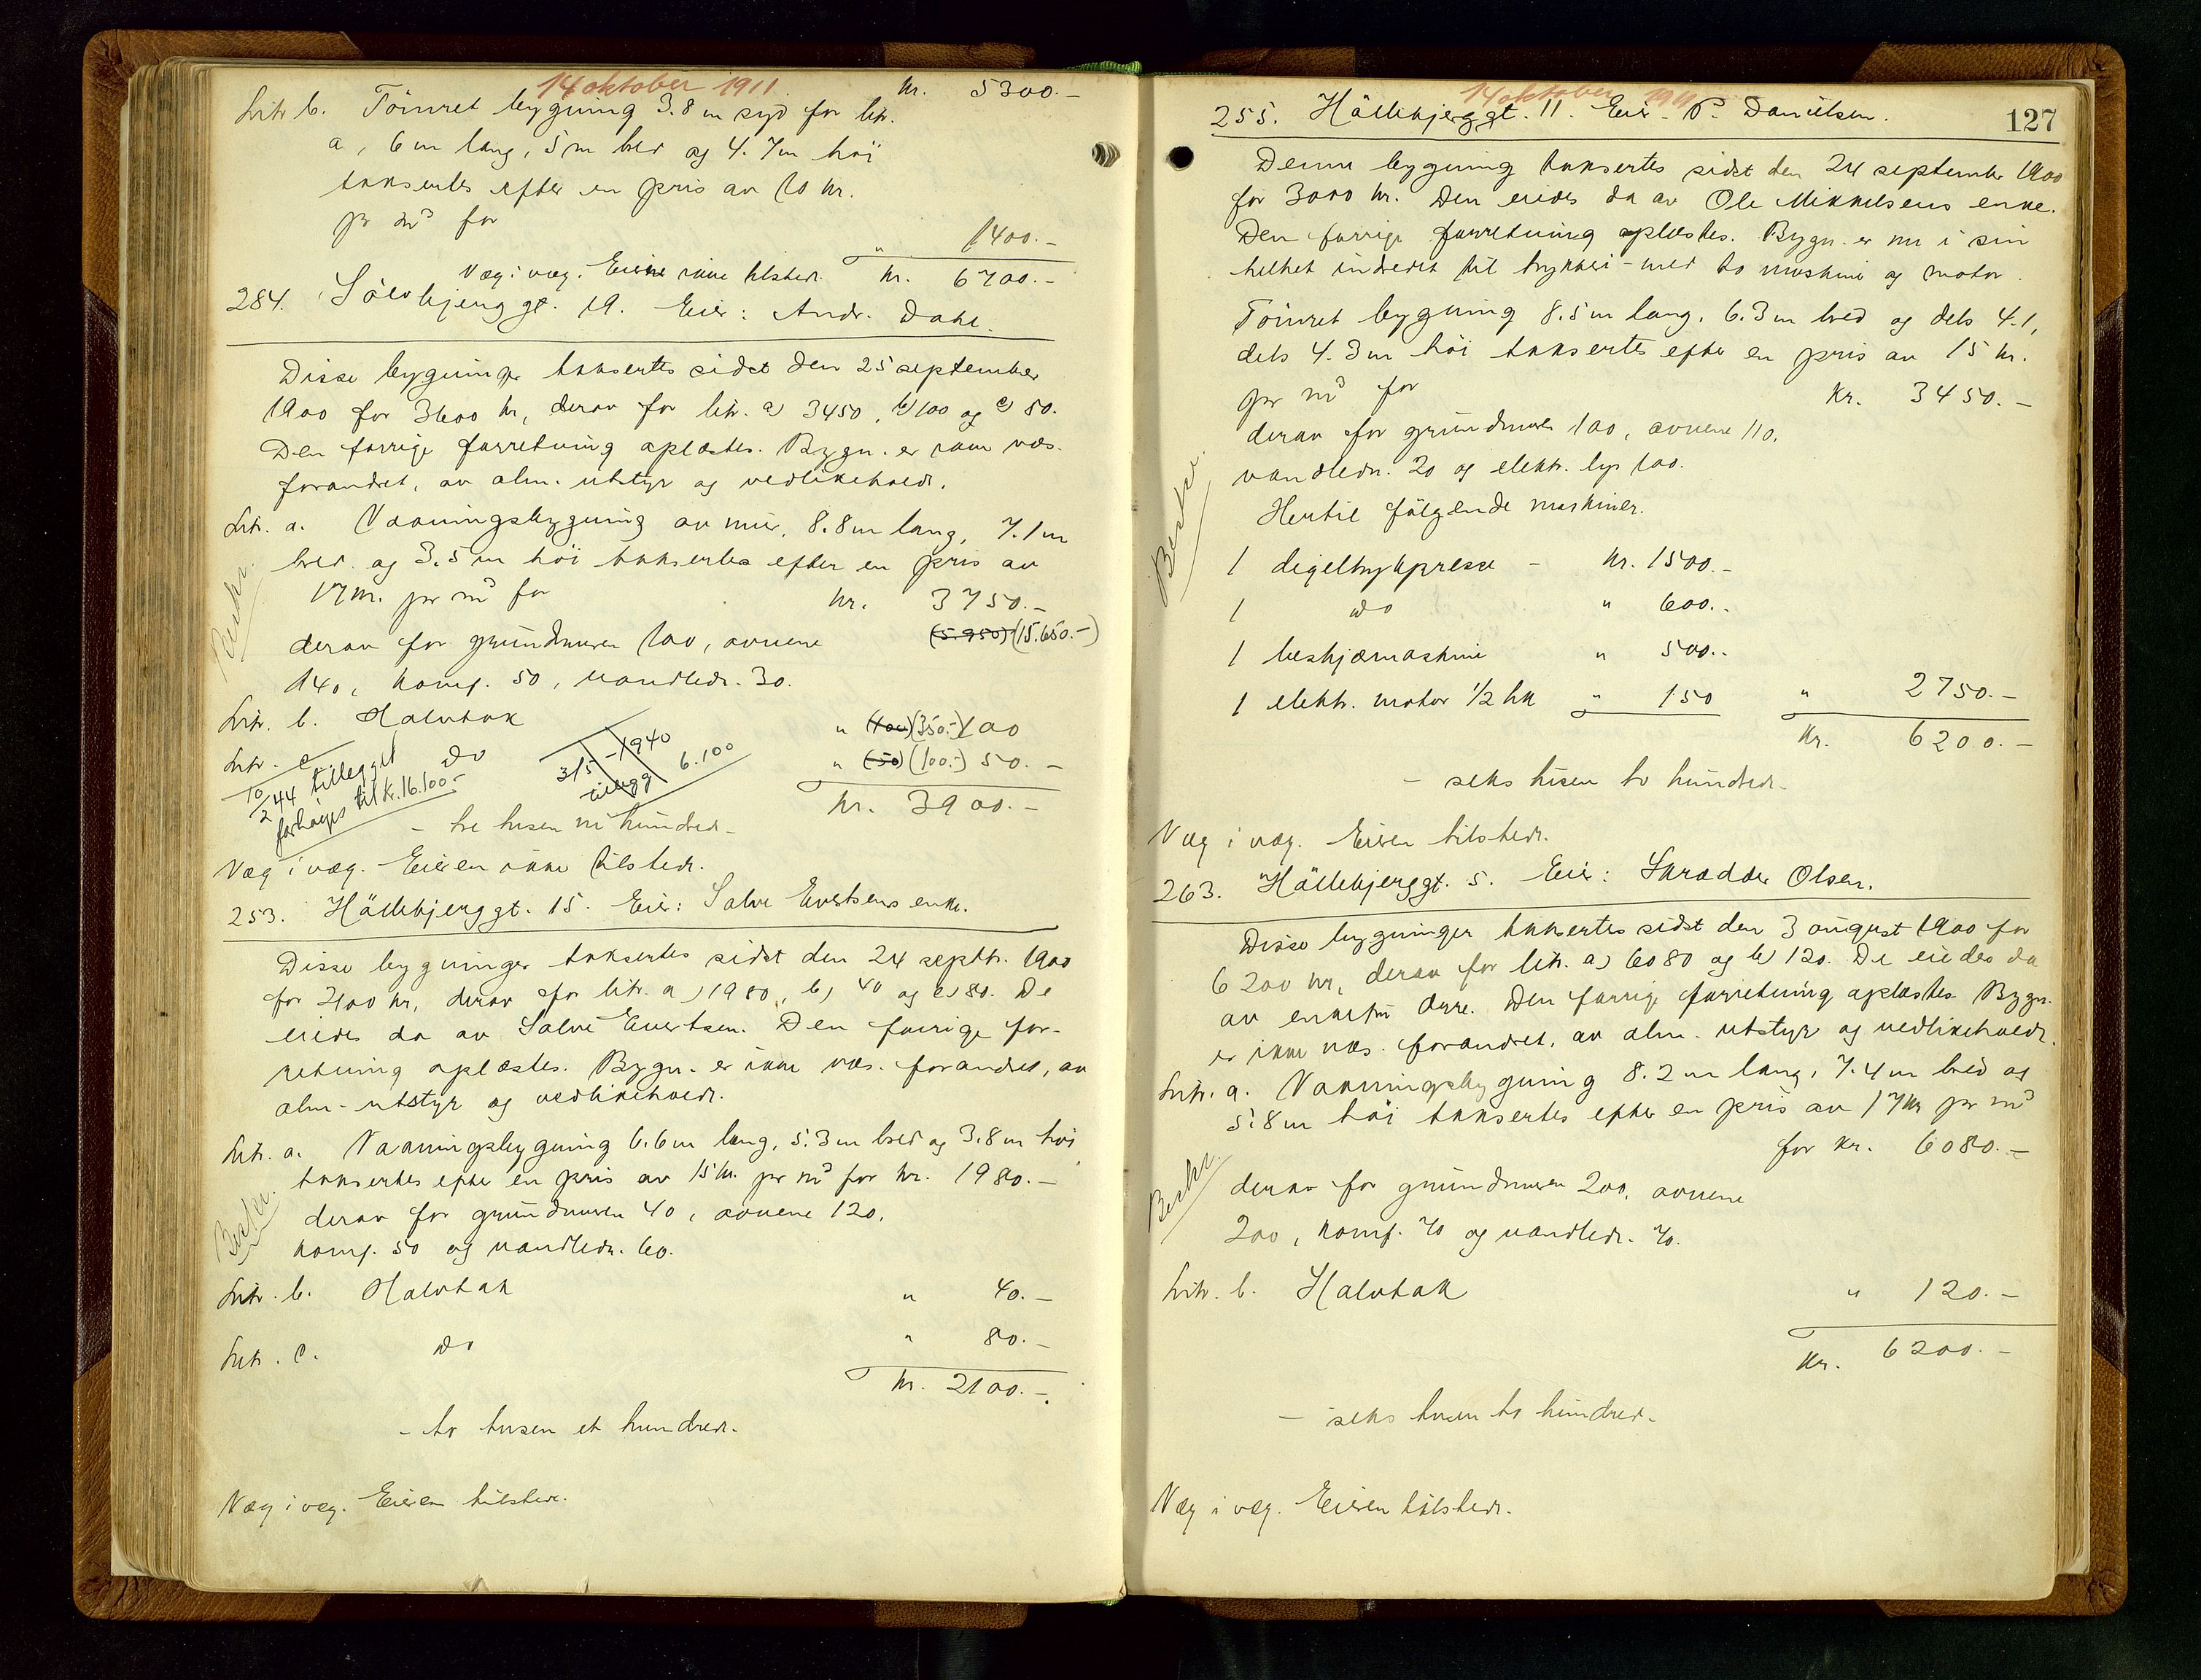 14 oktober 1911
kr. 5300.-
Litr b. Tömret bygning 3.8 m syd for litr.
a, 6 m lang, 5 m bred og 4.7 m höi
taksertes efter en pris av 10 kr.
pr m³ for
" 1400.-
Væg i væg. Eieren ikke tilstede. kr. 6700.-
284. Sölvbjerggt. 19. Eier: Andr. Dahl.
Disse bygninger taksertes sidst den 25 september
1900 for 3600 kr, derav for litr. a) 3450, b) 100 og c) 50.
Den forrige forretning oplæstes. Bygn. er ikke væs.
forandret, av alm. utstyr og vedlikehold.
Litr. a. Vaaningsbygning av mur, 8.8 m lang, 7.1 m
bred og 3.5 m höi taksertes efter en pris av
17 kr. pr m³ for kr. 3750.-
derav for grundmuren 100, ovnene (5.950) (15.650.-)
140, komf. 50, vandledn. 30.
Litr. b. Halvtak " (100) (350.-) 100
Litr. c. do " (50) (100.-) 50.-
10/2 44 tillegget
forhøyes til kr. 16.100.-
3/5-1940
tillegg 6.100
kr. 3900.-
- tre tusen ni hundred -
Væg i væg. Eieren ikke tilstede.
Beskr.
253. Hållebjerggt. 15. Eier: Salve Evertsens enke.
Disse bygninger taksertes sidst den 24 septbr. 1900
for 2100 kr, derav for litr. a) 1980, b) 40 og c) 80. De
eides da av Salve Evertsen. Den forrige for-
retning oplæstes. Bygn. er ikke væs. forandret, av
alm. utstyr og vedlikehold.
Litr. a. Vaaningsbygning 6.6 m lang, 5.3 m bred og 3.8 m höi
taksertes efter en pris av 15 kr. pr m³ for kr. 1980.-
derav for grundmuren 40, ovnene 120,
komf. 50 og vandledn. 60.
Beskr.
Litr. b. Halvtak " 40.-
Litr. c. do " 80.-
kr. 2100.-
- to tusen et hundred -
Væg i væg. Eieren tilstede.
14 oktober 1911
127
255. Hållebjerggt. 11. Eier - P. Danielsen.
Denne bygning taksertes sidst den 24 september 1900
for 3000 kr. Den eides da av Ole Mikkelsens enke.
Den forrige forretning oplæstes. Bygn. er nu i sin
helhet indredet til trykkeri - med to maskine og motor.
Tömret bygning 8.5 m lang, 6.3 m bred og dels 4.1,
dels 4.3 m höi taksertes efter en pris av 15 kr.
pr m³ for Kr. 3450.-
derav for grundmuren 100, ovnene 110,
vandledn. 20 og elektr. lys 100.
Hertil fölgende maskiner.
Beskr.
1 digeltrykpresse - kr. 1500.-
1 do " 600.-
1 beskjæmaskine " 500.-
1 elektr. motor 1/2 hk " 150 " 2750.-
Kr. 6200.-
- seks tusen to hundred -
Væg i væg. Eieren tilstede.
263. Hållebjerggt. 5. Eier: Skrædder Olsen.
Disse bygninger taksertes sidst den 3 august 1900 for
6200 kr, derav for litr. a) 6080 og b) 120. De eiedes da
av enkefru Den forrige forretning oplæstes. Bygn.
er ikke væs. forandret, av alm. utstyr og vedlikehold.
Litr. a. Vaaningsbygning 8.2 m lang, 7.4 m bred og
5.8 m höi taksertes efter en pris av 17 kr pr m³
for kr. 6080.-
Beskr.
derav for grundmuren 200, ovnene
200, komf. 70 og vandledn. 70.
Litr. b. Halvtak " 120.-
Kr. 6200.-
- seks tusen to hundred -
Væg i væg. Eieren tilstede.